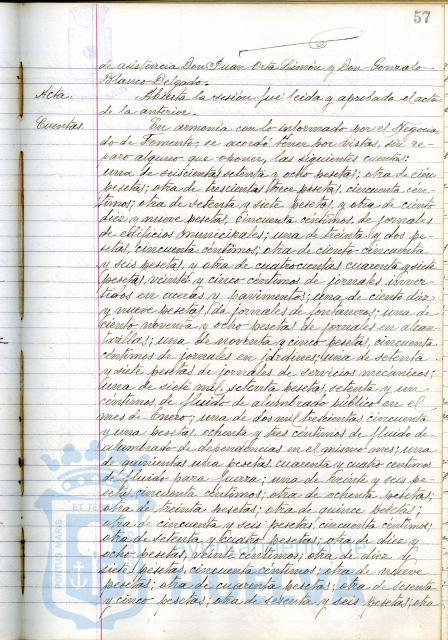 57
de asistencia Don Juan Orta Limón y Don Gonzalo
Blanco Delgado.
Acta. Abierta la sesión fué leida y aprobada el acta
de la anterior.
Cuentas. En armonia con lo informado por el Negocia
do de Fomento, se acordó tener por vistas, sin re-
paro alguno que oponer, las siguientes cuentas:
una de seiscientas setenta y ocho pesetas; otra de cien
pesetas; otra de trescientas trece pesetas, cincuenta cén-
timos; otra de setenta y siete pesetas, y otra de ciento
diez y nueve pesetas, cincuenta céntimos, de jornales
de edificios municipales; una de treinta y dos pe-
setas, cincuenta céntimos, otra de ciento cincuenta
y seis pesetas, y otra de cuatrocientas cuarenta y siete
pesetas, veinti y cinco céntimos de jornales inver-
tidos en cuevas y pavimentos; una de ciento diez
y nueve pesetas, de jornales de fontaneros; una de
ciento noventa y ocho pesetas de jornales en alcan-
tarillas; una de noventa y cinco pesetas, cincuenta
céntimos de jornales en jardines; una de setenta
y siete pesetas de jornales de servicios mecánicos;
una de siete mil setenta pesetas, setenta y un
céntimos de fluido de alumbrado público en el
mes de Enero; una de dos mil trescientas cincuenta
y una pesetas, ochenta y tres céntimos de fluido de
alumbrado de dependencias en el mismo mes; una
de quinientas una pesetas, cuarenta y cuatro céntimos
de fluido para fuerza; una de treinta y seis pe-
setas, cincuenta céntimos; otra de ochenta pesetas;
otra de treinta pesetas; otra de quince pesetas;
otra de cincuenta y seis pesetas, cincuenta céntimos;
otra de setenta y cuatro pesetas; otra de diez y
ocho pesetas, veinte céntimos; otra de diez y
siete pesetas, cincuenta céntimos; otra de nueve
pesetas; otra de cuarenta pesetas; otra de sesenta
y cinco pesetas; otra de sesenta y seis pesetas; otra
PORTUS MARIS